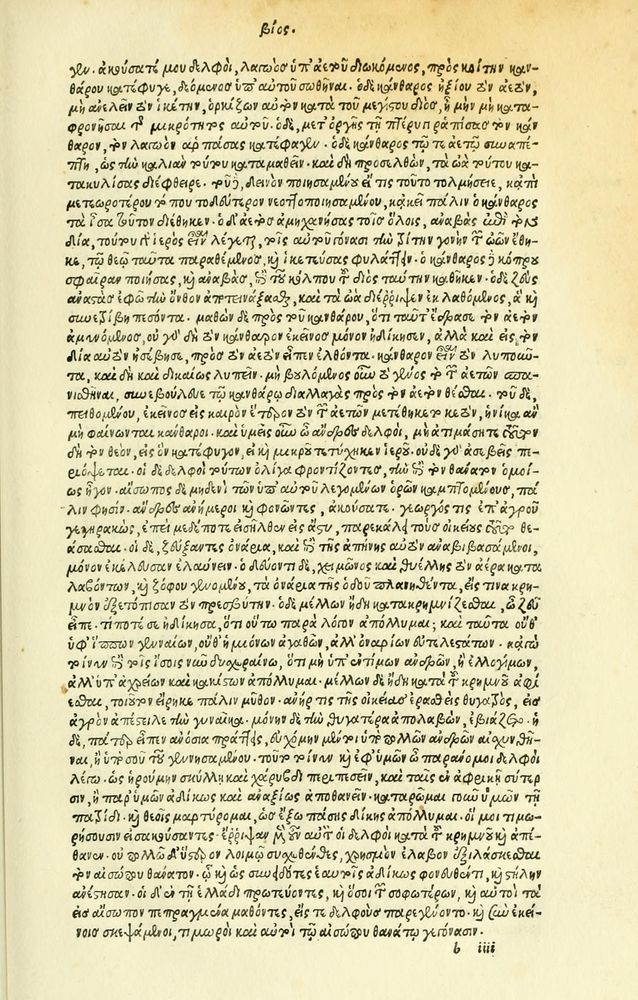 βίος.
γεν. ἀκούσατέ μου δελφοὶ, λαγωὸς ὑπ' ἀετοῦ διωκόμενος, πρὸς κοίτην καν-
θάρου κατέφυγε, δεόμενος ὑπ' αὐτοῦ σωθῆναι. ὁ δὲ κάνθαρος ἠξίου τὸν ἀετὸν,
μὴ ἀνελεῖν τὸν ἱκέτην, ὁρκίζων αὐτὸν κατὰ τοῦ μεγίστου διὸς, ἦ μὴν μὴ κατα-
φρονῆσαι τῆς μικρότητος αὐτοῦ. ὁ δὲ, μετ' ὀργῆς τῇ πτέρυγι ῥαπίσας τὸν κάν-
θαρον, τὸν λαγωὸν ἁρπάσας κατέφαγεν. ὁ δὲ κάνθαρος τῷ τε ἀετῷ συναπέ-
πτη, ὡς τὴν καλιὰν τούτου καταμαθεῖν. καὶ δὴ προσελθὼν, τὰ ὠὰ τούτου κα-
τακυλίσας διέφθειρε. τοῦ δὲ, δεινὸν ποιησαμένου εἴ τις τοῦτο τολμήσειε, κἀπὶ
μετεωροτέρου τόπου τὸ δεύτερον νεοττοποιησαμένου, κἀκεῖ πάλιν ὁ κάνθαρος
τὰ ἴσα τοῦτον διέθηκεν. ὁ δ' ἀετὸς ἀμηχανήσας τοῖς ὅλοις, ἀναβὰς ἐπὶ τὸν
δία, τούτου γὰρ ἱερὸς εἶναι λέγεται, τοῖς αὐτοῦ γόνασι τὴν τρίτην γονὴν τῶν ὠῶν ἔθη-
κε, τῷ θεῷ ταῦτα παραθέμενος, καὶ ἱκετεύσας φυλάττειν. ὁ κάνθαρος δὲ κόπρου
σφαῖραν ποιήσας, καὶ ἀναβὰς, ἐπὶ τοῦ κόλπου τοῦ διὸς ταύτην καθῆκεν. ὁ δὲ ζεὺς
ἀναστὰς ἐφ' ᾧ τὴν ὄνθον ἀποτινάξασθαι, καὶ τὰ ὠὰ διέρριψεν ἐκλαθόμενος, ἃ καὶ
συνετρίβη πεσόντα. μαθὼν δὲ πρὸς τοῦ κανθάρου, ὅτι ταῦτ' ἔδρασε τὸν ἀετὸν
ἀμυνόμενος, οὐ γὰρ δὴ τὸν κάνθαρον ἐκεῖνος μόνον ἠδίκησεν, ἀλλὰ καὶ εἰς τὸν
δία αὐτὸν ἠσέβησε, πρὸς τὸν ἀετὸν εἶπεν ἐλθόντα. κάνθαρον εἶναι τὸν λυποῦν-
τα, καὶ δὴ καὶ δικαίως λυπεῖν. μὴ βουλόμενος οὖν τὸ γένος τὸ τῶν ἀετῶν σπα-
νισθῆναι, συνεβούλευε τῷ κανθάρῳ διαλλαγὰς πρὸς τὸν ἀετὸν θέσθαι. τοῦ δὲ,
πειθομένου, ἐκεῖνος εἰς καιρὸν ἕτερον τὸν τῶν ἀετῶν μετέθηκε τοκετὸν, ἡνίκα ἂν
μὴ φαίνωνται κάνθαροι. καὶ ὑμεῖς οὖν ὦ ἄνδρες δελφοὶ, μὴ ἀτιμάσητε τοῦτον
δὴ τὸν θεὸν, εἰς ὃν κατέφυγον, εἰ καὶ μικροῦ τετύχηκεν ἱεροῦ. οὐδὲ γὰρ ἀσεβεῖς πε-
ριόψεται. οἱ δὲ δελφοὶ τούτων ὀλίγα φροντίζοντες, τὴν ἐπὶ τὸν θάνατον ὁμοί-
ως ἦγον. αἴσωπος δὲ μηδενὶ τῶν ὑπ' αὐτοῦ λεγομένων ὁρῶν καμπτομένους, πά-
λιν φησὶν. ἄνδρες ἀνήμεροι καὶ φονῶντες, ἀκούσατε. γεωργός τις ἐπ' ἀγροῦ
γεγηρακὼς, ἐπεὶ μεδέποτε εἰσῆλθεν εἰς ἄστυ, παρεκάλει τοὺς οἰκείους τοῦτο θε-
άσασθαι. οἱ δὲ, ζεύξαντες ὀνάρια, καὶ ἐπὶ τῆς ἀπήνης αὐτὸν ἀναβιβασάμενοι,
μόνον ἐκέλευσαν ἐλαύνειν. ὁδεύοντι δὲ, χειμῶνος καὶ θυέλλης τὸν ἀέρα κατα-
λαβόντων, καὶ ζόφου γενομένου, τὰ ὀνάρια τῆς ὁδοῦ πλανηθέντα, εἴς τινα κρη-
μνὸν ἐξετόπισαν τὸν πρεσβύτην. ὁ δὲ μέλλων ἤδη κατακρημνίζεσθαι, ὦ ζεῦ
εἶπε. τί ποτέ σε ἠδίκησα, ὅτι οὕτω παρὰ λόγον ἀπόλλυμαι. καὶ ταῦτα οὔθ'
ὑφ' ἵππων γενναίων, οὔθ' ἡμιόνων ἀγαθῶν, ἀλλ' ὀναρίων εὐτελεστάτων. κατὰ
τοίνυν ἐπὶ τοῖς ἴσοις νῦν δυσχεραίνω, ὅτι μὴ ὑπ' ἐντίμων ἀνδρῶν, ἢ ἐλλογίμων,
ἀλλ' ὑπ' ἀχρείων καὶ κακίστων ἀπόλλυμαι. μέλλων δὲ ἤδη κατὰ τοῦ κρημνοῦ ἀφί
εσθαι, τοιοῦτον εἴρηκε πάλιν μῦθον. ἀνήρ τις τῆς οἰκείας ἐρασθεὶς θυγατρὸς, εἰς
ἀγρὸν ἀπέστειλε τὴν γυναῖκα. μόνην δὲ τὴν θυγατέρα ἀπολαβὼν, ἐβιάζετο. ἡ
δὲ, πάτερ εἶπεν ἀνόσια πράττεις, εὐχόμην μέντοι ὑπὸ πολλῶν ἀνδρῶν αἰσχυνθῆ-
ναι, ἢ ὑπὸ σοῦ τοῦ γεννησαμένου. τοῦτο τοίνυν καὶ ἐφ' ὑμῶν ὦ παράνομοι δελφοὶ
λέγω. ὡς ᾑρούμην σκύλλῃ καὶ χαρύβδει περιπεσεῖν, καὶ ταῖς ἐν ἀφρικῇ σύρτε
σιν, ἢ παρ' ὑμῶν ἀδίκως καὶ ἀναξίως ἀποθανεῖν. καταρῶμαι γοῦν ὑμῶν τῇ
πατρίδι. καὶ θεοὺς μαρτύρομαι, ὡς ἔξω πάσης δίκης ἀπόλλυμαι. οἵ μοι τιμω-
ρήσουσιν εἰσακούσαντες. ἔρριψαν μὲν οὖν αὐτὸν οἱ δελφοὶ κατὰ τοῦ κρημνοῦ καὶ ἀπέ-
θανεν. οὐ πολλῷ δ' ὕστερον λοιμῷ συσχεθέντες, χρησμὸν ἔλαβον ἐξιλάσκεσθαι
τὸν αἰσώπου θάνατον. ᾧ καὶ ὡς συνειδότες ἑαυτοῖς ἀδίκως φονευθέντι, καὶ στήλην
ἀνέστησαν. οἱ δ' ἐν τῇ ἑλλάδι πρωτεύοντες, καὶ ὅσοι τῶν σοφωτέρων, καὶ αὐτοὶ τὰ
εἰς αἴσωπον πεπραγμένα μαθόντες, εἴς τε δελφοὺς παρεγένοντο. καὶ σὺν ἐκεί-
νοις σκεψάμενοι, τιμωροὶ καὶ αὐτοὶ τῷ αἰσώπου θανάτῳ γεγόνασιν.
b iiii